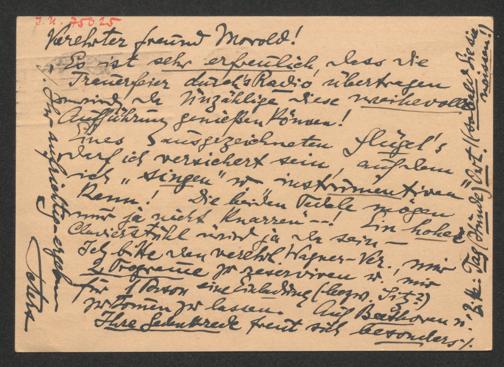 I.N. 75025
Verehrter Freund Morold!
Es ist sehr erfreulich, dass die
Trauerfeier durch's Radio übertragen
wird, da Unzählige diese weihevolle
Aufführung genießen können!
Eines ausgezeichneten Flügel's
darf ich versichert sein auf dem
ich "singen" u instrumentiren"
kann! Die beiden Pedale mögen
nur ja nicht knarren--! Ein hoher
Clavierstuhl wird ja da sein-
Ich bitte den verehrl. Wagner-Ver., mir
2 Programe zu reserviren u. mir
für 1 Person eine Einladung (bezw. Sitz?)
zukomen zu lassen. Auf Beethoven u.
Ihre Gedenkrede freut sich besonders
Ihr aufrichtig-ergeben
Bitte Tag, Stunde, Ort! (sobald Sie die
wissen!)